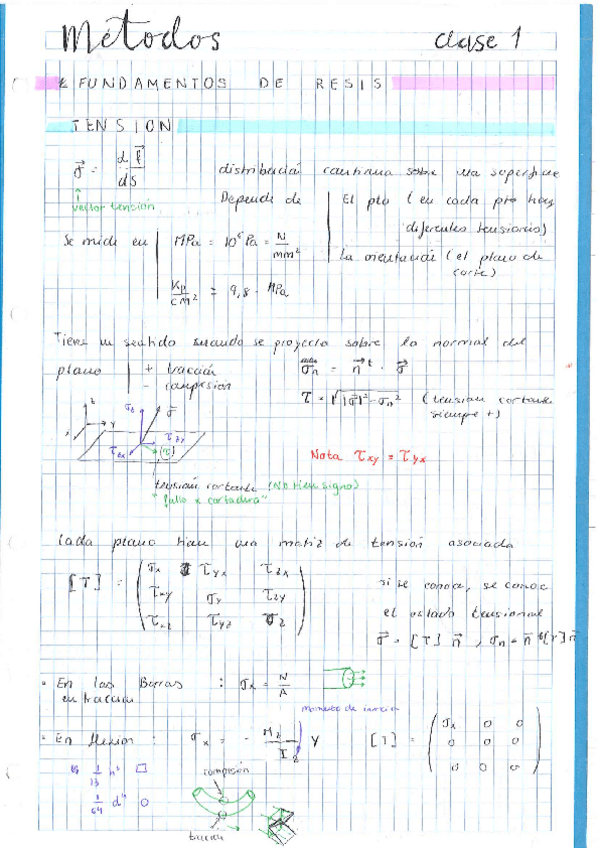 Métodos clase 1
FUNDAMENTOS DE RESIS
TENSION
σ⃗ = d f⃗ / ds
vector tensión
distribución continua sobre una superficie
Depende de | El pto (en cada pto hay
diferentes tensiones)
La orientación (el plano de
corte)
Se mide en | MPa = 10⁶ Pa = N/mm²
Kp/cm² = 9,8 · MPa
Tiene un sentido cuando se proyecta sobre la normal del
plano | + tracción
- compresión
σn = n⃗ᵗ · σ⃗
τ = √|σ⃗|² - σn² (tension cortante
siempre +)
z
y
σz
σ⃗
τzy
τzx
(τ)
Nota τxy = τyx
tensión cortante (No tiene signo)
"fallo x cortadura"
Cada plano tiene una matriz de tensión asociada
[T] = ( σx τyx τzx
τxy σy τzy
τxz τyz σz )
si se conoce, se conoce
el estado tensional
σ⃗ = [T] n⃗ , σn = n⃗ᵗ[T] n⃗
- En las Barras : σx = N/A
en tracción
momento de inercia
- En flexion : σx = - Mz/Iz y [T] = ( σx 0 0
0 0 0
0 0 0 )
1/64 d⁴
compresión
tracción